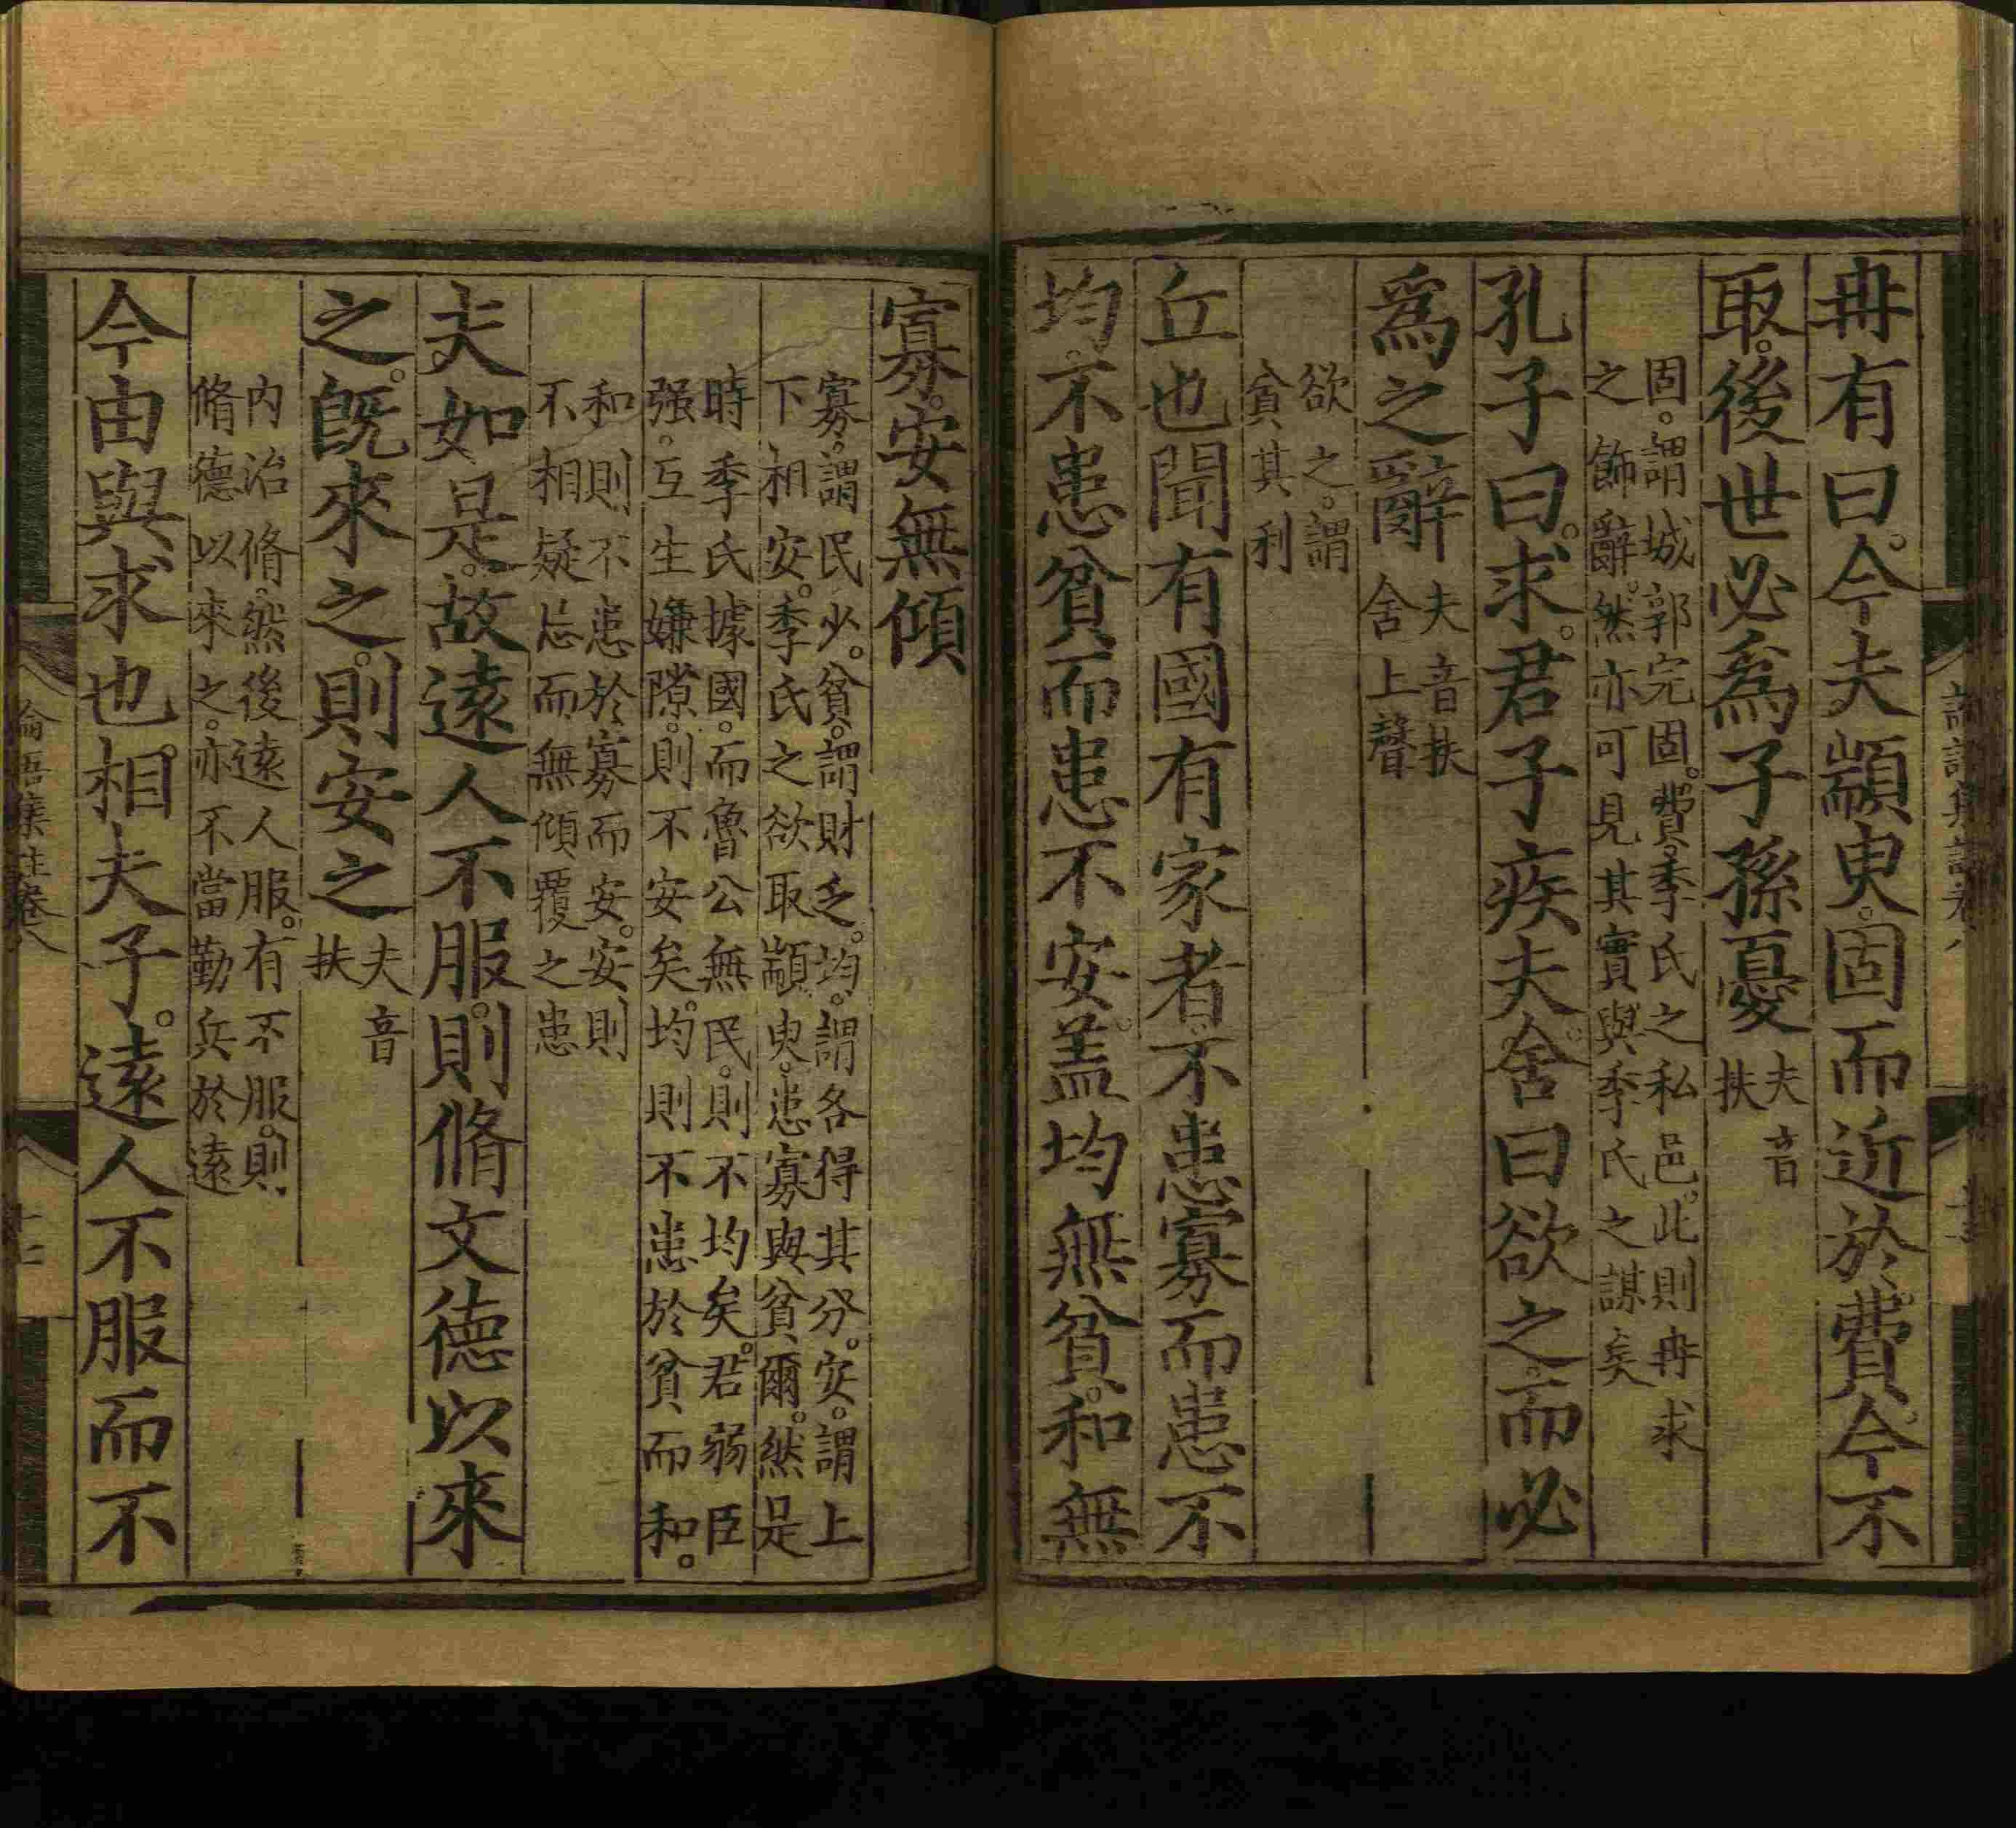 冉有曰。今夫顓臾。固而近於費。今不
取。後世必爲子孫憂夫音
扶
固。謂城郭完固。費。季氏之私邑。此則冉求
之飾辭。然亦可見其實與季氏之謀矣
孔子曰。求。君子疾夫。舍曰欲之。而必
爲之辭夫音扶
舍上聲
欲之。謂
貪其利
丘也聞有國有家者。不患寡而患不
均。不患貧而患不安。盖均無貧。和無
寡。安無傾
寡。謂民少。貧。謂財乏。均。謂各得其分。安。謂上
下相安。季氏之欲取顓臾。患寡與貧爾。然是
時季氏據國。而魯公無民。則不均矣。君弱臣
强。互生嫌隙。則不安矣。均則不患於貧而和。
和則不患於寡而安。安則
不相疑忌而無傾覆之患
夫如是。故遠人不服。則脩文德以來
之。既來之。則安之夫音
扶
內治脩。然後遠人服。有不服。則
脩德以來之。亦不當勤兵於遠
今由與求也。相夫子。遠人不服而不
論語集註卷八